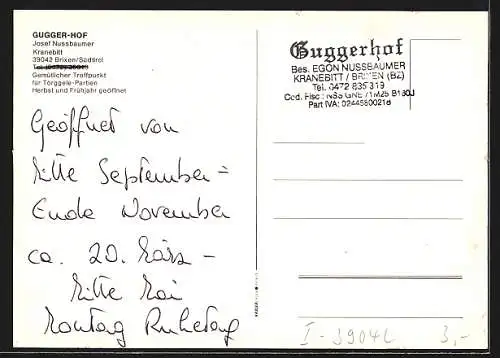 GUGGER-HOF
Josef Nussbaumer
Kranebitt
39042 Brixen/Südtirol
Gemütlicher Treffpunkt
für Törggele-Partien
Herbst und Frühjahr geöffnet
Geöffnet von
Mitte September -
Ende November
ca. 20. März -
Mitte Mai
Montag Ruhetag
Guggerhof
Bes. EGON NUSSBAUMER
KRANEBITT / BRIXEN (BZ)
Tel. 0472 835 319
Cod. Fisc.: NSS GNE 71M25 B160J
Part IVA: 02445800218
I-39042
3,-